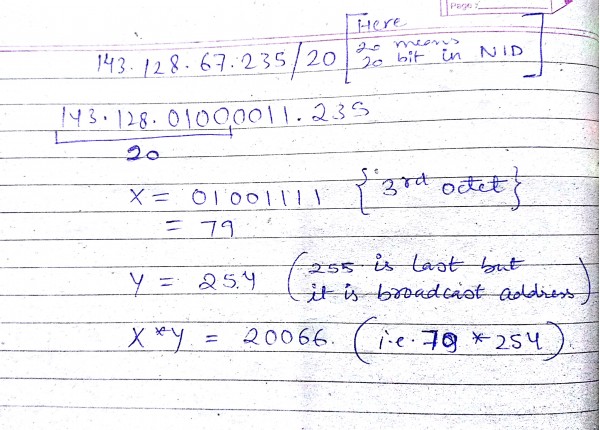 Page:
143.128.67.235/20 [Here
20 means
20 bit in NID]
143.128.01000011.235
20
X = 01001111 {3rd octet}
= 79
Y = 254 (255 is last but
it is broadcast address)
X*Y = 20066. (i.e. 79 * 254).